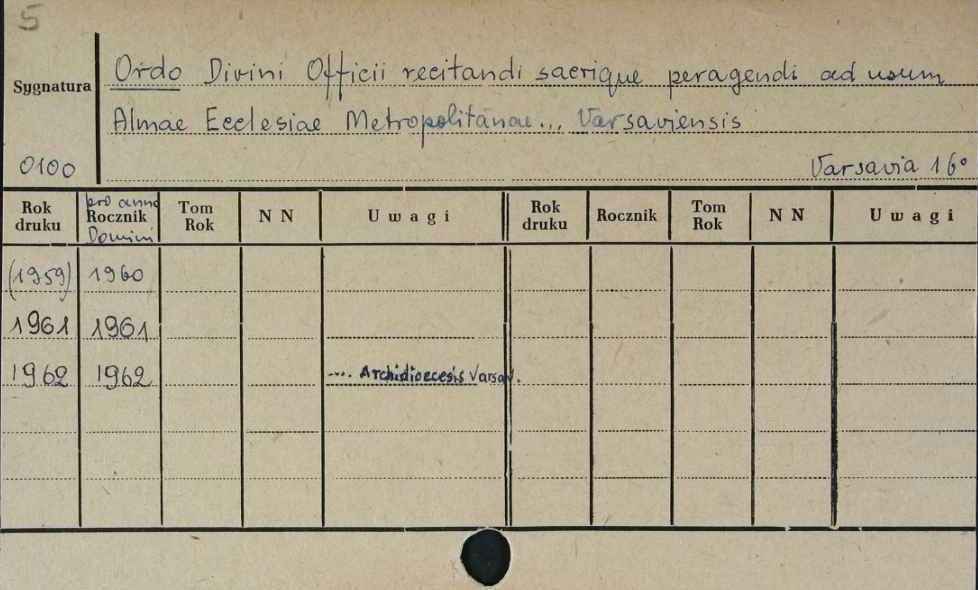 5
Sygnatura
Ordo Divini Officii recitandi sacrique peragendi ad usum
Almae Ecclesiae Metropolitanae... Varsaviensis
0100 Varsavia 16°
Rok druku pro anno Rocznik Domini Tom Rok N N Uwagi Rok druku Rocznik Tom Rok N N Uwagi
(1959) 1960
1961 1961
1962 1962 .... Archidioecesis Varsav.